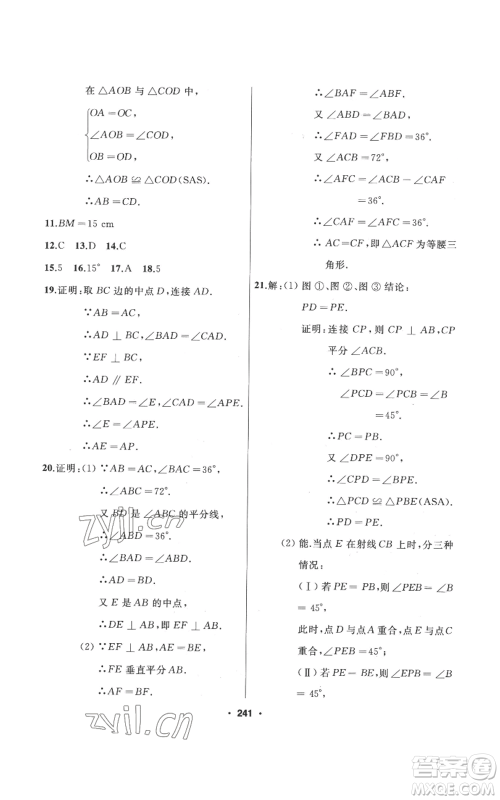 在 △AOB 与 △COD 中,
OA=OC,
∠AOB=∠COD,
OB=OD,
∴△AOB≌△COD(SAS).
∴AB=CD.
11.BM=15 cm
12.C 13.D 14.C
15.5 16.15° 17.A 18.5
19.证明:取 BC 边的中点 D,连接 AD.
∵AB=AC,
∴AD⊥BC.
∵EF⊥BC,
∴AD∥EF.
∴∠BAD=∠E,∠CAD=∠APE.
∵∠BAD=∠CAD,
∴∠E=∠APE.
∴AE=AP.
20.证明:(1)∵AB=AC,∠BAC=36°,
∴∠ABC=72°.
又 BD 是∠ABC 的平分线,
∴∠ABD=36°.
∴∠BAD=∠ABD.
∴AD=BD.
又 E 是 AB 的中点,
∴DE⊥AB,即 FE⊥AB.
(2)∵EF⊥AB,AE=BE,
∴FE 垂直平分 AB.
∴AF=BF.
∴∠BAF=∠ABF.
又∠ABD=∠BAD,
∴∠FAD=∠FBD=36°.
又∠ACB=72°,
∴∠AFC=∠ACB-∠CAF
=36°.
∴∠CAF=∠AFC
=36°.
∴AC=CF,即△ACF 为等腰三
角形.
21.解:(1)图①、图②、图③结论:
PD=PE.
证明:连接 CP,CP⊥AB,CP
平分∠ACB.
∴∠BPC=90°,
∠PCD=∠PCB=∠B
=45°.
∴PC=PB.
又∠DPE=90°,
∴∠CPD=∠BPE.
∴△PCD≌△PBE(ASA).
∴PD=PE.
(2)能.当点 E 在射线 CB 上时,分三种
情况:
(Ⅰ)若 PE=PB,则∠PEB=∠B
=45°,
此时,点 D 与点 A 重合,点 E 与点 C
重合,
(Ⅱ)若 PE=BE,则∠BPE=∠B
=45°.
• 241 •
zyjl.cn
zyjl.cn
作业精灵
MXQE.COM